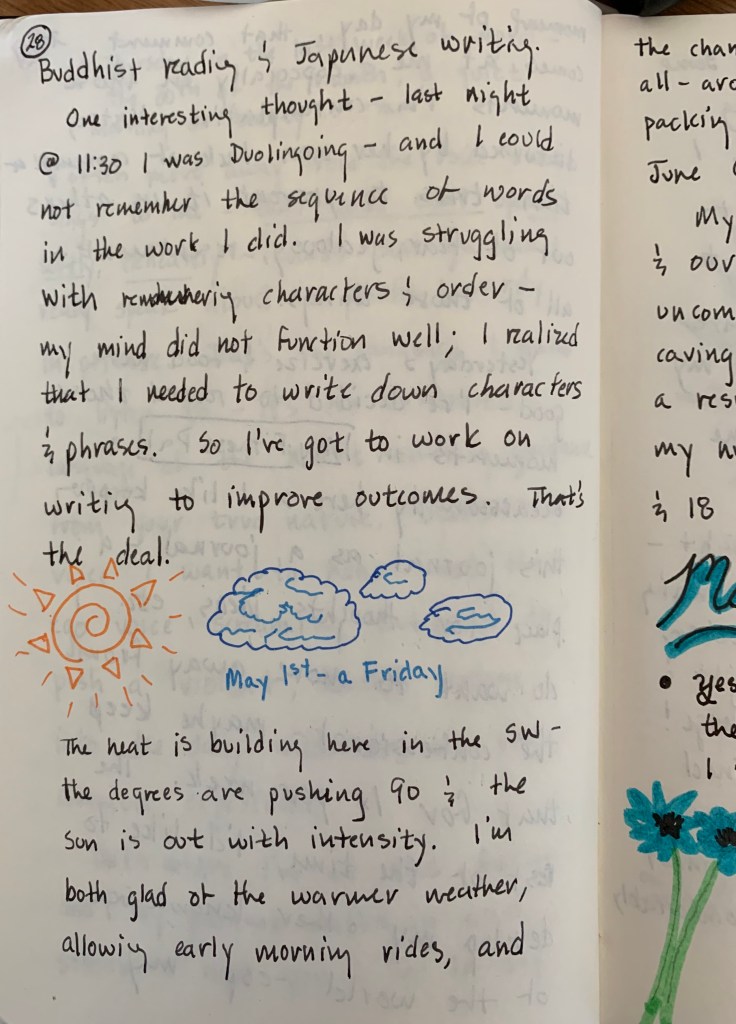 28
Buddhist reading & Japanese writing.
One interesting thought - last night
@ 11:30 I was Duolingoing - and I could
not remember the sequence of words
in the work I did. I was struggling
with remembering characters & order -
my mind did not function well; I realized
that I needed to write down characters
& phrases. So I've got to work on
writing to improve outcomes. That's
the deal!
May 1st - a Friday
The heat is building here in the SW -
the degrees are pushing 90 & the
sun is out with intensity. I'm
both glad of the warmer weather,
allowing early morning rides, and
the
all - 
packing
June
My
& our
uncom
caving
a res
my
& 18
• Yes
the
I